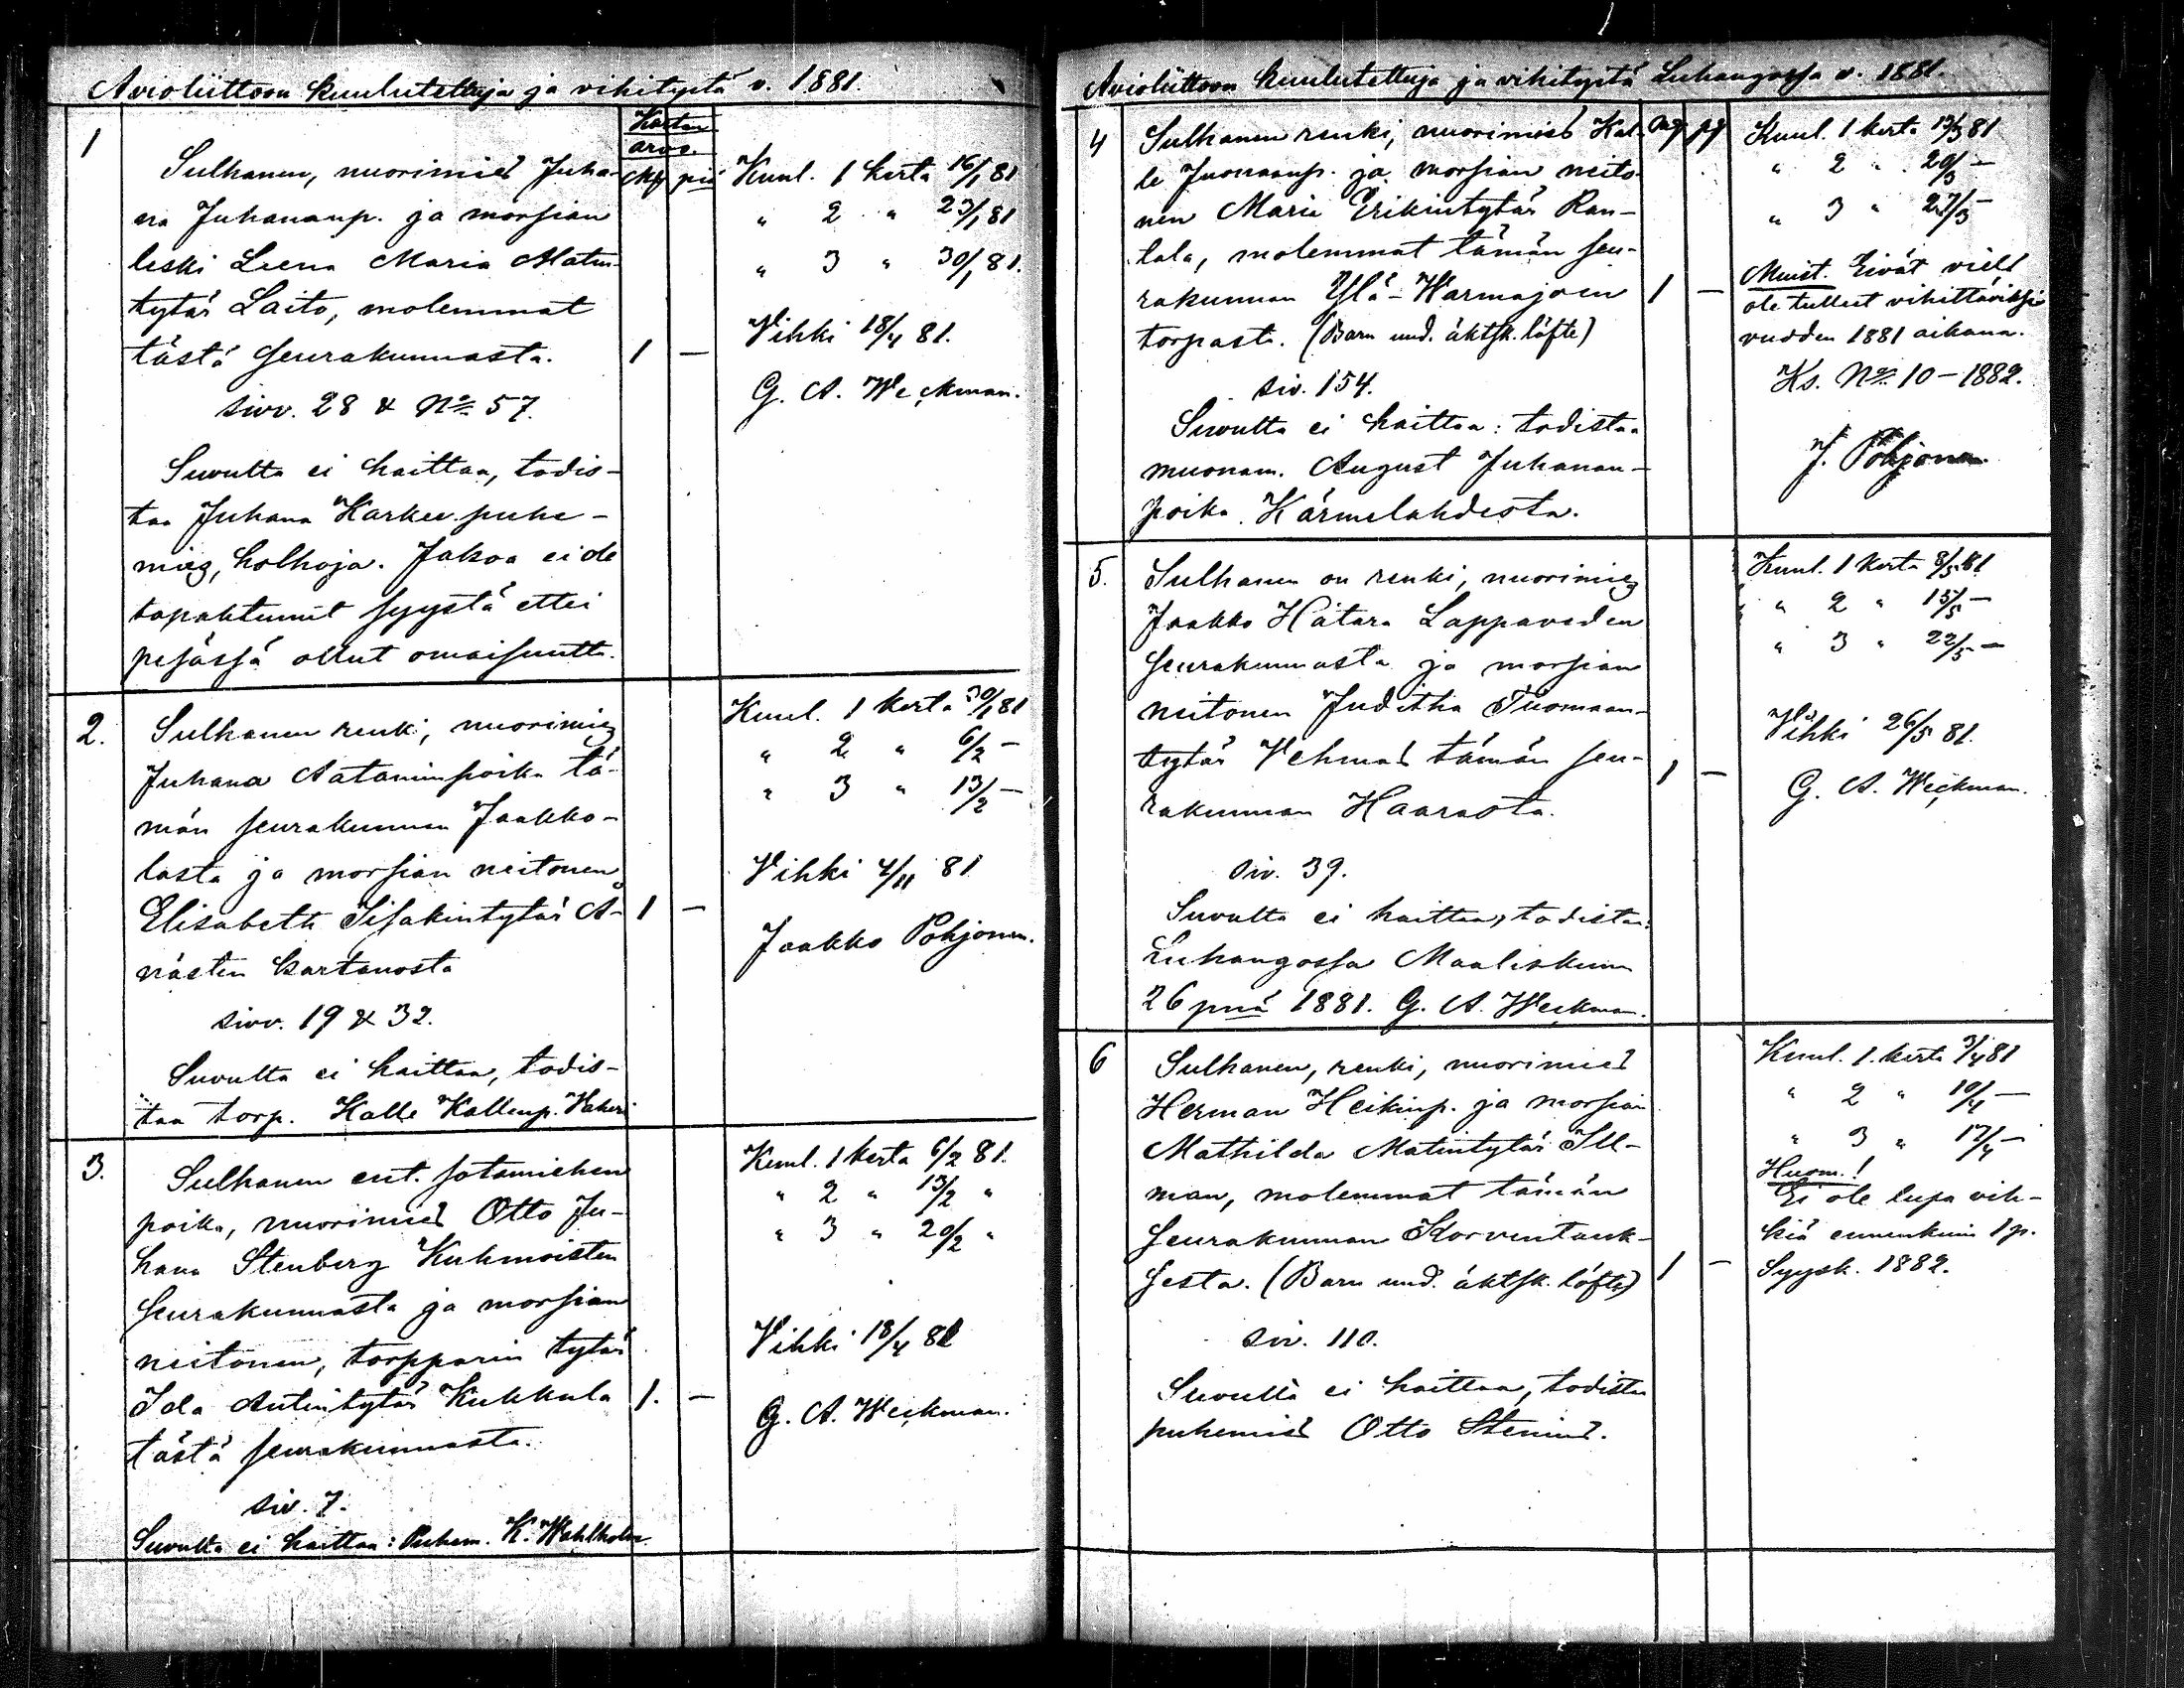 Avioliittoon kuulutettuja ja vihityitä v. 1881.
1
Sulhanen, nuorimies Juha-
na Juhananp. ja morsian
leski Leena Maria Matin-
tytär Laito, molemmat
tästä seurakunnasta.
sivv. 28 & No 57.
Suvulta ei haittaa, todis-
taa Juhana Karkee puhe-
mies, holhoja. Jakoa ei ole
tapahtunut syystä ettei
pesässä ollut omaisuutta.
arvo.
1 —
Kuul. 1 kerta 16/1 81
" 2 " 23/1 81
" 3 " 30/1 81.
Vihki 18/4 81.
G. A. Weckman.
2.
Sulhanen renki, nuorimies
Juhana Aataminpoika tä-
män seurakunnan Jaakko-
lasta ja morsian neitonen
Elisabeth Iisakintytär A-
nästen kartanosta
sivv. 19 & 32.
Suvulta ei haittaa, todis-
taa torp. Kalle Kallenp.
1 —
Kuul. 1 kerta 30/1 81
" 2 " 6/2 —
" 3 " 13/2 —
Vihki 4/11 81
Jaakko Pohjonen.
3.
Sulhanen ent. sotamiehen
poika, nuorimies Otto Ju-
hana Stenberg Kuhmoisten
seurakunnasta ja morsian
neitonen, torpparin tytär
Ida Antintytär Kukkula
tästä seurakunnasta.
siv. 7.
Suvulta ei haittaa: Puhem. K. Wahlholm.
1. —
Kuul. 1 kerta 6/2 81.
" 2 " 13/2 "
" 3 " 20/2 "
Vihki 18/4 81
G. A. Weckman.
Avioliittoon kuulutettuja ja vihityitä Luhangossa v. 1881.
4
Sulhanen renki, nuorimies Kal-
le Juonaanp. ja morsian neito-
nen Maria Erikintytär Ran-
tala, molemmat tämän seu-
rakunnan Ylä-Harmajoen
torpasta. (Barn und. äktsk. löfte)
siv. 154.
Suvulta ei haittaa: todistaa
muonam. August Juhanan-
poika Kärmelahdesta.
1 —
Kuul. 1 kerta 13/3 81
" 2 " 20/3 —
" 3 " 27/3 —
Muist. Eivät vielä
ole tulleet vihittäviksi
vuoden 1881 aikana.
Ks. No 10 - 1882.
J. Pohjonen
5.
Sulhanen on renki, nuorimies
Jaakko Hatara Lappaveden
seurakunnasta ja morsian
neitonen Juditha Tuomaan-
tytär Vehmas tämän seu-
rakunnan Haarasta.
siv. 39.
Suvulta ei haittaa, todistaa:
Luhangossa Maaliskuun
26 pnä 1881. G. A. Weckman.
1 —
Kuul. 1 kerta 8/5 81.
" 2 " 15/5 —
" 3 " 22/5 —
Vihki 26/5 81.
G. A. Weckman.
6
Sulhanen, renki, nuorimies
Herman Heikinp. ja morsian
Mathilda Matintytär Ill-
man, molemmat tämän
seurakunnan Korventauk-
sesta. (Barn und. äktsk. löfte)
siv. 110.
Suvulta ei haittaa, todistaa
puhemies Otto Stenius.
1 —
Kuul. 1. kerta 3/4 81
" 2 " 10/4 —
" 3 " 17/4 —
Huom.!
Ei ole lupa vih-
kiä ennenkuin 1 p.
Syysk. 1882.